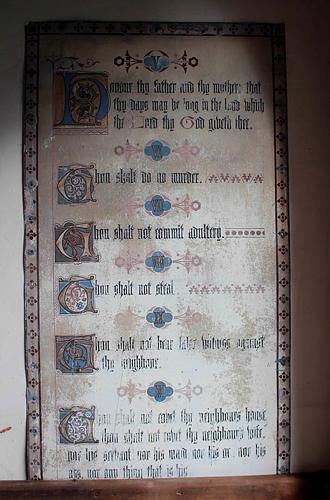 V
Honour thy father and thy mother: that
thy days may be long in the land which
the Lord thy God giveth thee.
VI
Thou shalt do no murder.
VII
Thou shalt not commit adultery.
VIII
Thou shalt not steal.
IX
Thou shalt not bear false witness against
thy neighbour.
X
Thou shalt not covet thy neighbour's house
thou shalt not covet thy neighbour's wife,
nor his servant, nor his maid, nor his ox, nor his
ass, nor any thing that is his